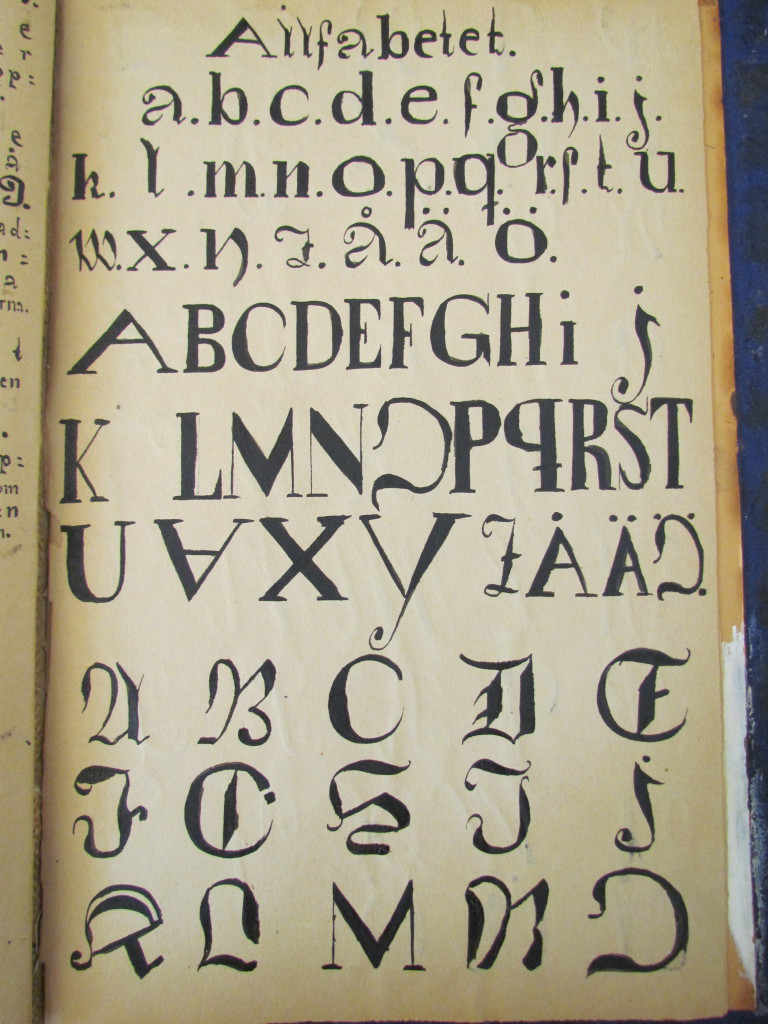 Allfabetet.
a.b.c.d.e.f.g.h.i.j.
k.l.m.n.o.p.q.r.s.t.u.
w.x.y.z.å.ä.ö.
ABCDEFGHi j
K LMNOPqRST
UVXYZÅÄÖ.
A B C D E
F G H I j
K L M N O